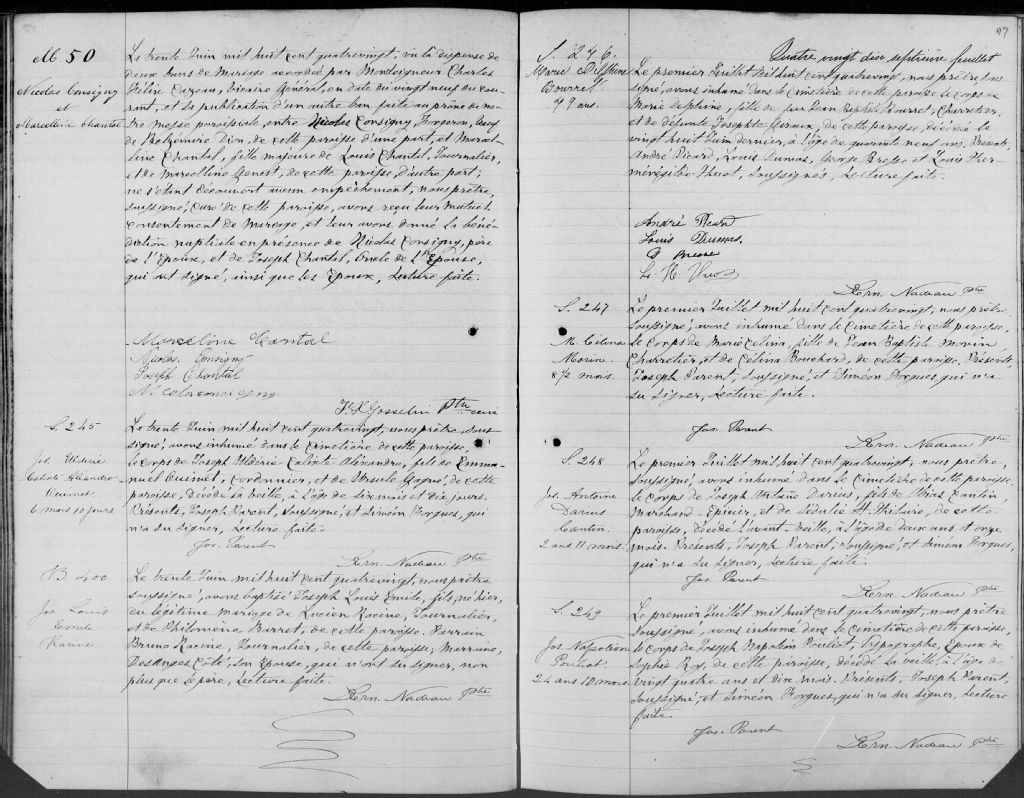 M 50
Nicolas Consigny
et
Marcelline Chantal
Le trente Juin mil huit cent quatrevingt, vu la dispense de
deux bans de Mariage accordée par Monseigneur Charles
Félix Cazeau, Vicaire Général, en date du vingt neuf du cou-
rant, et la publication d'un autre ban faite au prône de no-
tre messe paroissiale, entre Nicolas Consigny, Forgeron, veuf
de Dion, de cette paroisse d'une part, et Marcel-
line Chantal, fille majeure de Louis Chantal, Journalier,
et de Marcelline Genest, de cette paroisse, d'autre part;
ne s'étant découvert aucun empêchement, nous prêtre,
soussigné, Curé de cette paroisse, avons reçu leur mutuel
consentement de Mariage, et leur avons donné la béné-
diction nuptiale en présence de Nicolas Consigny, père
de l'Epoux, et de Joseph Chantal, Oncle de l'Epouse,
qui ont signé, ainsi que les Epoux, Lecture faite.
Marceline Chantal
Nicolas Consigny
Joseph Chantal
N. Consigny
F X Gosselin Ptre curé
S. 245
Jos. Uldéric
Calixte Alexandre
Ouimet
6 mois 10 jours
Le trente Juin mil huit cent quatrevingt, nous prêtre, sous-
signé, avons inhumé dans le cimetière de cette paroisse,
le corps de Joseph Uldéric Calixte Alexandre, fils de Emma-
nuel Ouimet, Cordonnier, et de Ursule Gagné, de cette
paroisse, décédé la veille, à l'âge de six mois et dix jours.
Présents, Joseph Parent, soussigné, et Siméon Forgues, qui
n'a su signer, Lecture faite.
Jos. Parent
Kern. Nadeau Ptre
B. 400
Jos Louis
Emile
Racine
Le trente Juin mil huit cent quatrevingt, nous prêtre
soussigné, avons baptisé Joseph Louis Emile, fils, né hier,
du légitime mariage de Lucien Racine, Journalier,
et de Philomène Barret, de cette paroisse. Parrain
Bruno Racine, Journalier, de cette paroisse; Marraine,
DesAnges Côté, son Epouse, qui n'ont su signer, non
plus que le père, Lecture faite.
Kern. Nadeau Ptre
97
Quatre vingt dix septième feuillet
S. 246
Marie Delphine
Bourret
49 ans.
Le premier Juillet mil huit cent quatrevingt, nous prêtre sous-
signé, avons inhumé dans le cimetière de cette paroisse le corps de
Marie Delphine, fille de feu Jean Baptiste Bourret, Charretier,
et de défunte Josephte de cette paroisse, décédée le
vingt huit Juin dernier, à l'âge de quarante neuf ans. Présents,
André Picard, Louis Dumas, George et Louis Her-
ménégilde Huot, soussignés, Lecture faite.
André Picard
Louis Dumas,
L. H. Huot
Kern. Nadeau Ptre
S. 247
M. Célina
Morin
8 1/2 mois.
Le premier Juillet mil huit cent quatrevingt, nous prêtre,
soussigné, avons inhumé dans le cimetière de cette paroisse,
le corps de Marie Célina, fille de Jean Baptiste Morin
Charretier, et de Célina Bouchard, de cette paroisse. Présents,
Joseph Parent, soussigné, et Siméon Forgues qui n'a
su signer, Lecture faite.
Jos. Parent
Kern. Nadeau Ptre
S. 248
Jos. Antoine
Darius
Cantin
2 ans 11 mois.
Le premier Juillet mil huit cent quatrevingt, nous prêtre,
soussigné, avons inhumé dans le cimetière de cette paroisse,
le corps de Joseph Darius, fils de Cantin,
Marchand-Epicier, et de St. Hilaire, de cette
paroisse, décédé l'avant-veille, à l'âge de deux ans et onze
mois. Présents, Joseph Parent, soussigné, et Siméon Forgues,
qui n'a su signer, Lecture faite.
Jos Parent
Kern. Nadeau Ptre
S. 249
Jos Napoléon
Pouliot
24 ans 10 mois
Le premier Juillet mil huit cent quatrevingt, nous prêtre
soussigné, avons inhumé dans le cimetière de cette paroisse,
le corps de Joseph Napoléon Pouliot, Typographe, Epoux de
Sophie Roy, de cette paroisse, décédé la veille, à l'âge de
vingt quatre ans et dix mois. Présents, Joseph Parent,
soussigné, et Siméon Forgues, qui n'a su signer, Lecture
faite.
Jos. Parent
Kern. Nadeau Ptre